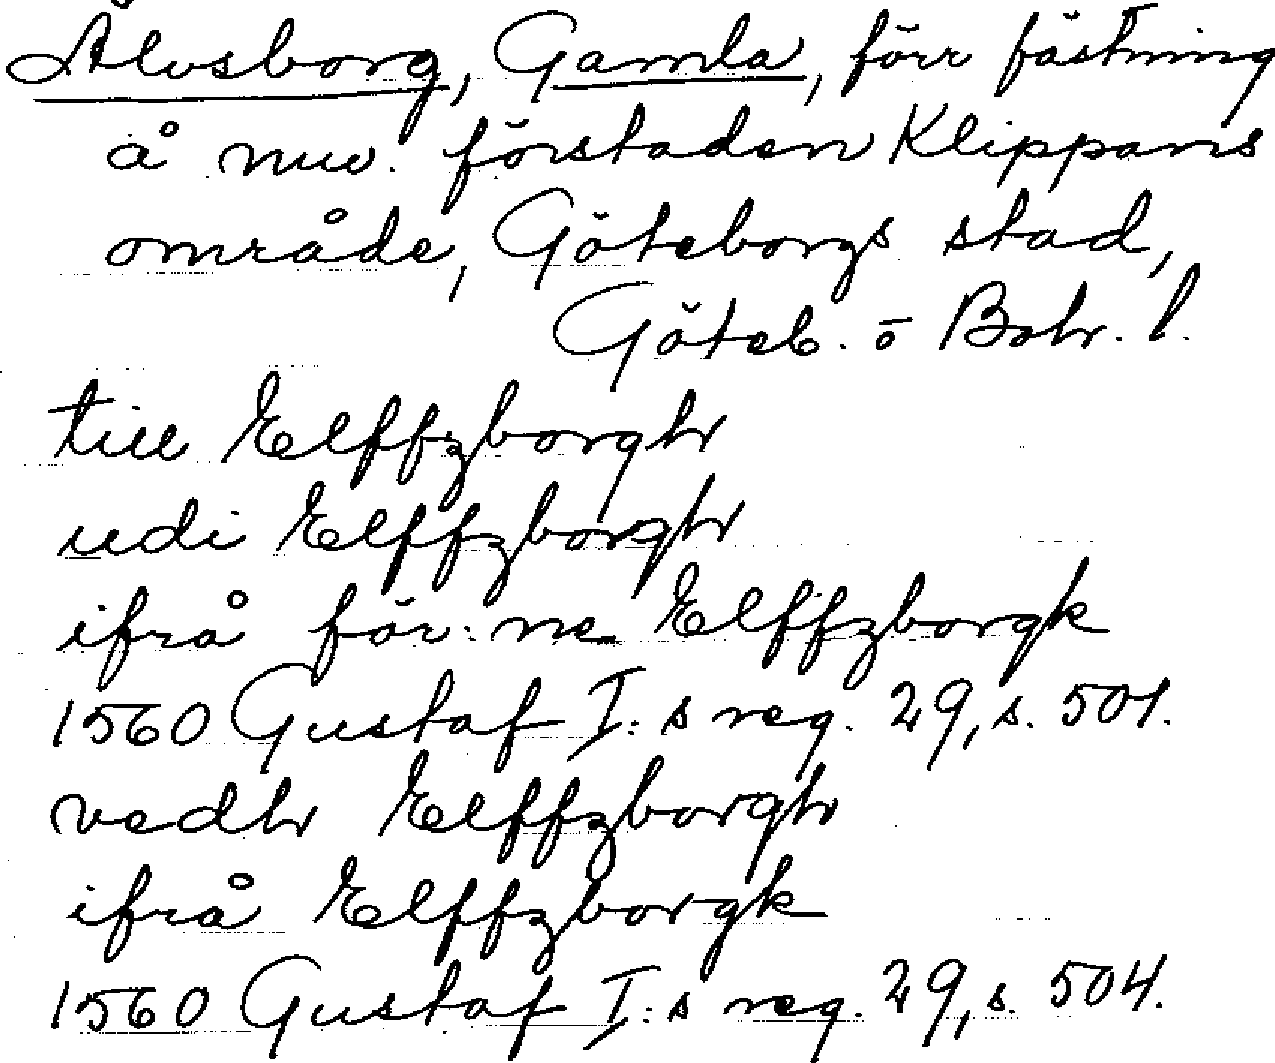 Älvsborg, Gamla, förr fästning
å nuv. förstaden Klippans
område, Göteborgs stad,
Göteb. o Boh. l.
till Elffzborgh
udi Elffzborgh
ifrå för:ne Elffzborgk
1560 Gustaf I:s reg. 29, s. 501.
vedh Elffzborgh
ifrå Elffzborgk
1560 Gustaf I:s reg. 29, s. 504.